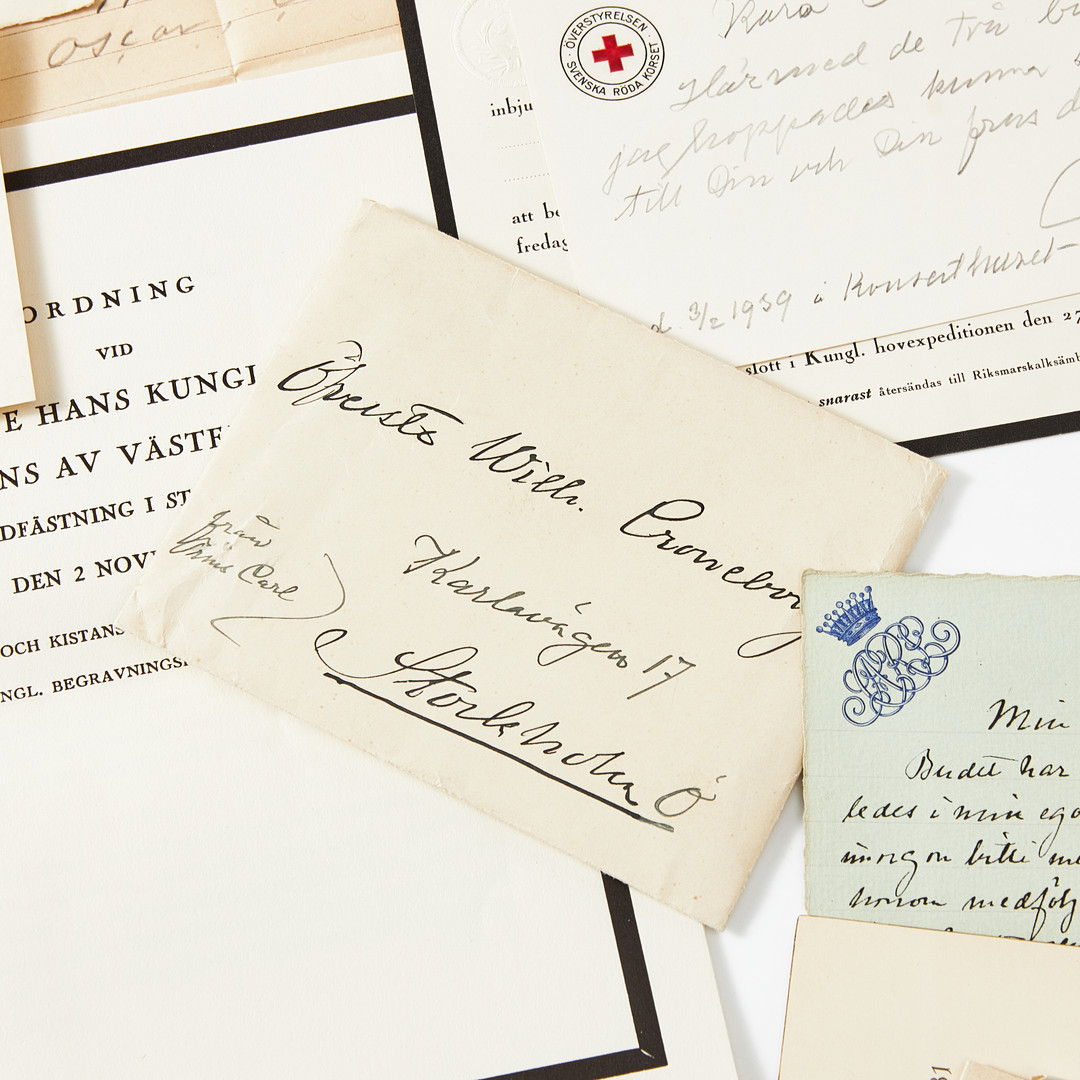 Oscar,
ORDNING
VID
E HANS KUNGL
NS AV VÄSTE
DFÄSTNING I ST
DEN 2 NOV
OCH KISTANS
NGL. BEGRAVNINGS
inbju
att be
fredag
slott i Kungl. hovexpeditionen den 27
snarast återsändas till Riksmarskalksämb
ÖVERSTYRELSEN
SVENSKA RÖDA KORSET
Kära
Härmed de två
jag hoppades kunna
till Din och Din
d. 3/2 1939 i Konserthuset
Öfverste Wilh. Croneborg
Karlavägen 17
Stockholm Ö
från
Prins Carl
Min
Budet har
ledes i min ego
imorgon bitti me
honom medfölj